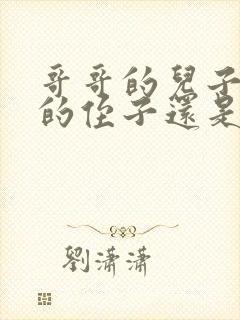 哥哥的兒子
的侄子還是
劉瀟瀟